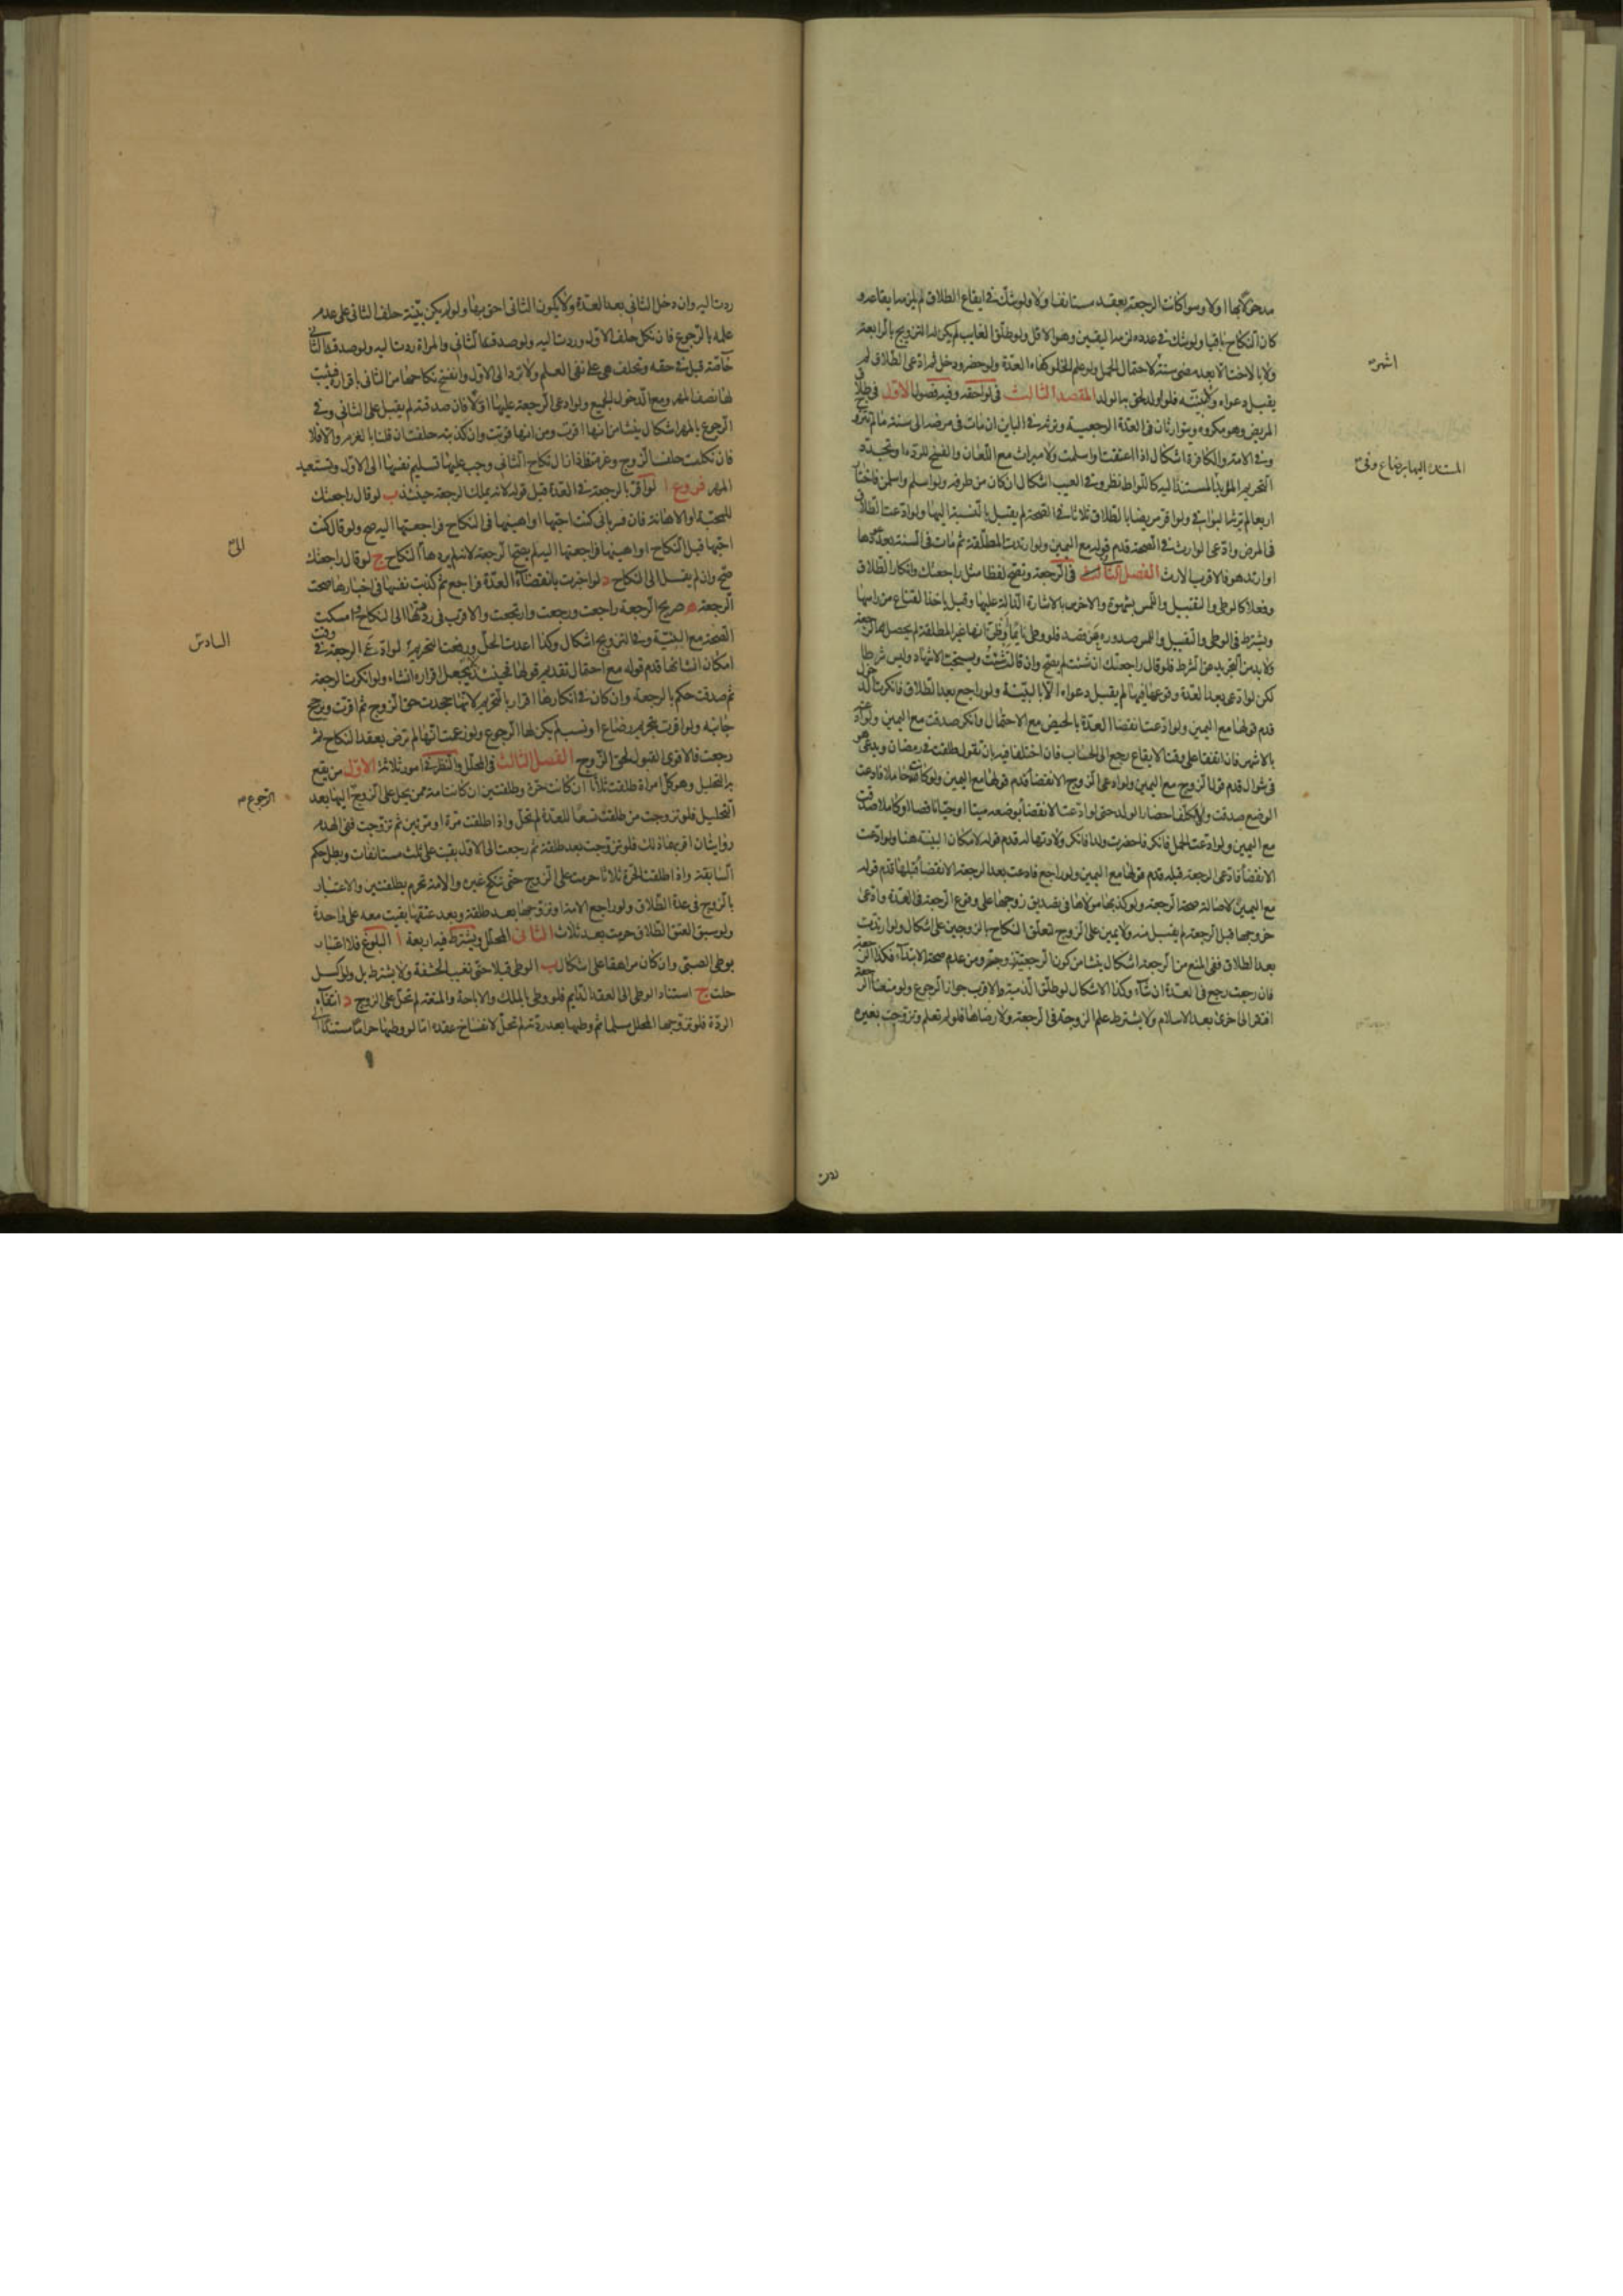 مدخولا بها اولا وسواء كانت الرجعة بعقد مستانف اولا ولو شك في ايقاع الطلاق لم يلزمه ايقاعه و
كان النكاح باقيا ولو شك في عدده لزمه اليقين وهو الاقل ولو طلق الغايب لم يكن له التزويج بالرابعة
ولا بالاخت الا بعد مضى سنة لاحتمال الحمل ولو علم الخلو كفاه العدة ولو حضر ودخل ثم ادعى الطلاق لم
يقبل دعواه ولا بينته فلو اولد لحق به الولد المقصد الثالث في لواحقه وفيه فصول الاول في طلاق
المريض وهو مكروه ويتوارثان في العدة الرجعية وترثه في الباين ان مات في مرضه الى سنة ما لم تتزوج
وفي الامة والكافرة اشكال اذا اعتقت او اسلمت ولا ميراث مع اللعان والفسخ للردة او تجدد
التحريم المؤبد المستند اليه كاللواط نظر وفي العيب اشكال ان كان من طرفه ولو اسلم واسلمن فاختار
اربعا لم يرثه البواقي ولو اقر مريضا بالطلاق ثلاثا في الصحة لم يقبل بالنسبة اليها ولو ادعت الطلاق
في المرض وادعى الوارث في الصحة قدم قوله مع اليمين ولو ارتدت المطلقة ثم مات في السنة بعد عودها
او ارتد هو فالاقرب الارث الفصل الثاني في الرجعة وتصح لفظا مثل راجعتك وانكار الطلاق
وفعلا كالوطى والتقبيل واللمس بشهوة والاخرس بالاشارة الدالة عليها وقيل باخذ القناع من راسها
ويشترط في الوطى والتقبيل واللمس صدوره عن قصد فلو وطى نايما او ظن انها غير المطلقة لم يحصل بها الرجعة
ولا بد من التجريد عن الشرط فلو قال راجعتك ان شئت لم يصح وان قالت شئت ويستحب الاشهاد وليس شرطا
لكن لو ادعى بعد العدة وقوعها فيها لم يقبل دعواه الا بالبينة ولو راجع بعد الطلاق فانكرت الدخول
قدم قولها مع اليمين ولو ادعت انقضا العدة بالحيض مع الاحتمال وانكر صدقت مع اليمين ولو ادعته
بالاشهر فان اتفقا على وقت الايقاع رجع الى الحساب فان اختلفا فيه بان تقول طلقت في رمضان ويدعي هو
في شوال قدم قول الزوج مع اليمين ولو ادعى الزوج الانقضاء قدم قولها مع اليمين ولو كانت حاملا فادعت
الوضع صدقت ولا يكلفها احضار الولد حتى لو ادعت الانقضاء بوضعه ميتا او حيا ناقصا او كاملا صدقت
مع اليمين ولو ادعت الحمل فانكر فاحضرت ولدا فانكر ولادتها له قدم قوله لامكان البينة هنا ولو ادعت
الانقضاء فادعى الرجعة قبله قدم قولها مع اليمين ولو راجع فادعت بعد الرجعة الانقضاء قبلها قدم قوله
مع اليمين لاصالة صحة الرجعة ولو كذبها مولاها في تصديق زوجها على وقوع الرجعة في العدة وادعى
خروجها قبل الرجعة لم يقبل منه ولا يمين على الزوج لتعلق النكاح بالزوجين على اشكال ولو ارتدت
بعد الطلاق ففي المنع من الرجعة اشكال ينشا من كون الرجعية زوجة ومن عدم صحة الابتداء فكذا الرجعة
فان رجعت رجع في العدة ان شاء وكذا الاشكال لو طلق الذمية والاقرب جواز الرجوع ولو منعنا الرجعة
افتقر الى اخرى بعد الاسلام ولا يشترط علم الزوجة في الرجعة ولا رضاها فلو لم تعلم وتزوجت بغيره
اشهر
المستند اليها برضاع وفي
ردت اليه وان دخل الثاني بعد العدة ولا يكون الثاني احق بها ولو لم يكن بينة حلف الثاني على عدم
علمه بالرجوع فان نكل حلف الاول وردت اليه ولو صدقه الثاني والمراة ردت اليه ولو صدقه الثاني
خاصة قبل في حقه وتحلف هي على نفي العلم ولا ترد الى الاول وانفسخ نكاحها من الثاني باقراره فيثبت
لها نصف المهر ومع الدخول الجميع ولو ادعى الرجعة عليها اولا فان صدقته لم يقبل على الثاني وفي
الرجوع بالمهر اشكال ينشا من انها اقرت ومن انها فوتت وان كذبته حلفت ان قلنا بالغرم والا فلا
فان نكلت حلف الزوج وغرمت فاذا زال نكاح الثاني وجب عليها تسليم نفسها الى الاول وتستعيد
المهر فروع ا لو اقر بالرجعة في العدة قبل قوله لانه يملك الرجعة حينئذ ب لو قال راجعتك
للمحبة او الاهانة فان فسر باني كنت احبها او اهينها في النكاح فراجعتها اليه صح ولو قال كنت
احبها قبل النكاح او اهينها فراجعتها اليه لم يصح الرجعة لانه لم يردها الى النكاح ج لو قال راجعتك
صح وان لم يقل الى النكاح د لو اخبرت بانقضاء العدة فراجع ثم كذبت نفسها في اخبارها صحت
الرجعة ه صريح الرجعة راجعت ورجعت وارتجعت والاقرب في رددتها الى النكاح او امسكت
الصحة مع النية وفي التزويج اشكال وكذا اعدت الحل ورفعت التحريم لو ادعى الرجعة في وقت
امكان انشائها قدم قوله مع احتمال تقديم قولها فحينئذ لا يجعل اقراره انشاء ولو انكرت الرجعة
ثم صدقت حكم بالرجعة وان كان في انكارها اقرار بالتحريم لانها جحدت حق الزوج ثم اقرت ويرجح
جانبه ولو اقرت بتحريم رضاع او نسب لم يكن لها الرجوع ولو زعمت انها لم ترض بعقد النكاح ثم
رجعت فالاقوى القبول لحق الزوج الفصل الثالث في المحلل والنظر في امور ثلاثة الاول من يقع
به التحليل وهو كل امراة طلقت ثلاثا ان كانت حرة وطلقتين ان كانت امة ممن يحل على الزوج اليها بعد
التحليل فلو تزوجت من طلقت تسعا للعدة لم تحل واذا طلقت مرة او مرتين ثم تزوجت ففي الهدم
روايتان اقربهما ذلك فلو تزوجت بعد طلقة ثم رجعت الى الاول بقيت على ثلث مستانفات وبطل حكم
السابقة واذا طلقت الحرة ثلاثا حرمت على الزوج حتى تنكح غيره والامة تحرم بطلقتين والاعتبار
بالزوج في عدة الطلاق ولو راجع الامة او تزوجها بعد طلقة وبعد عتقها بقيت معه على واحدة
ولو سبق العتق الطلاق حرمت بعد ثلاث الثاني المحلل ويشترط فيه اربعة ا البلوغ فلا اعتبار
بوطى الصبى وان كان مراهقا على اشكال ب الوطى قبلا حتى تغيب الحشفة ولا يشترط بل ولو اكسل
حلت ج استناد الوطى الى العقد الدايم فلو وطى بالملك والاباحة والمتعة لم تحل على الزوج د انتفاء
الردة فلو تزوجها المحلل مسلما ثم وطيها بعد ردته لم تحل لانفساخ عقده اما لو وطيها حراما مستندا الى
الى
السادس
الرجوع
ردت